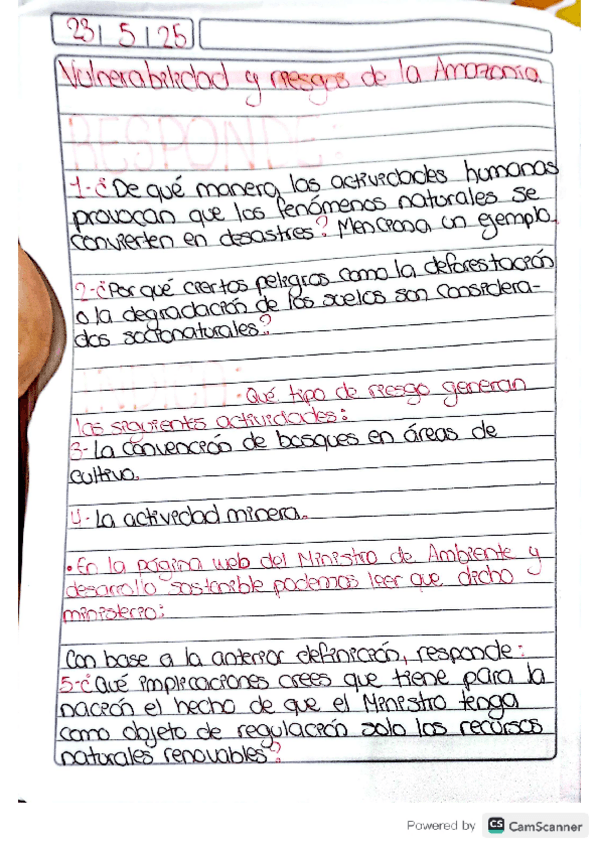 23 | 5 | 25
Vulnerabilidad y riesgos de la Amazonía.
RESPONDE:
1-¿De qué manera, las actividades humanas
provocan que los fenómenos naturales se
convierten en desastres? Menciona, un ejemplo.
2-¿Por qué ciertos peligros como la deforestación
o la degradación de los suelos son considera-
dos socionaturales?
. Qué tipo de riesgo generan
las siguientes actividades:
3- La convención de bosques en áreas de
cultivo.
4- La actividad minera.
• En la página web del Ministro de Ambiente y
desarrollo sostenible podemos leer que dicho
ministerio:
Con base a la anterior definición, responde:
5-¿Qué implicaciones crees que tiene para la
nación el hecho de que el Ministro tenga
como objeto de regulación solo los recursos
naturales renovables?
Powered by CS CamScanner